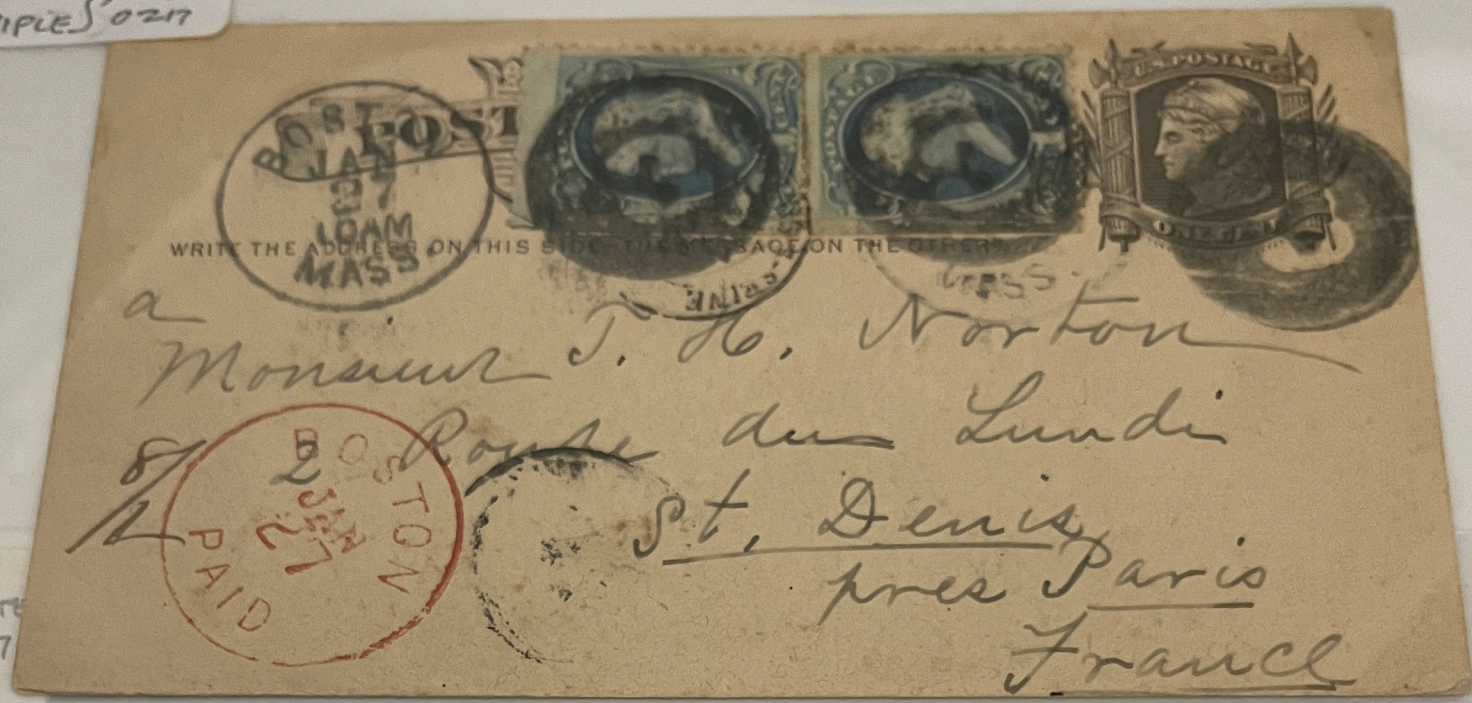 BOST
JAN
27
10AM
MASS.
POST
POSTAGE
U.S. POSTAGE
ONE CENT
WRITE THE ADDRESS ON THIS SIDE - THE MESSAGE ON THE OTHER
MASS.
a
Monsieur T. H. Norton
2 Route du Landi
St. Denis,
pres Paris
France
BOSTON
JAN
27
PAID